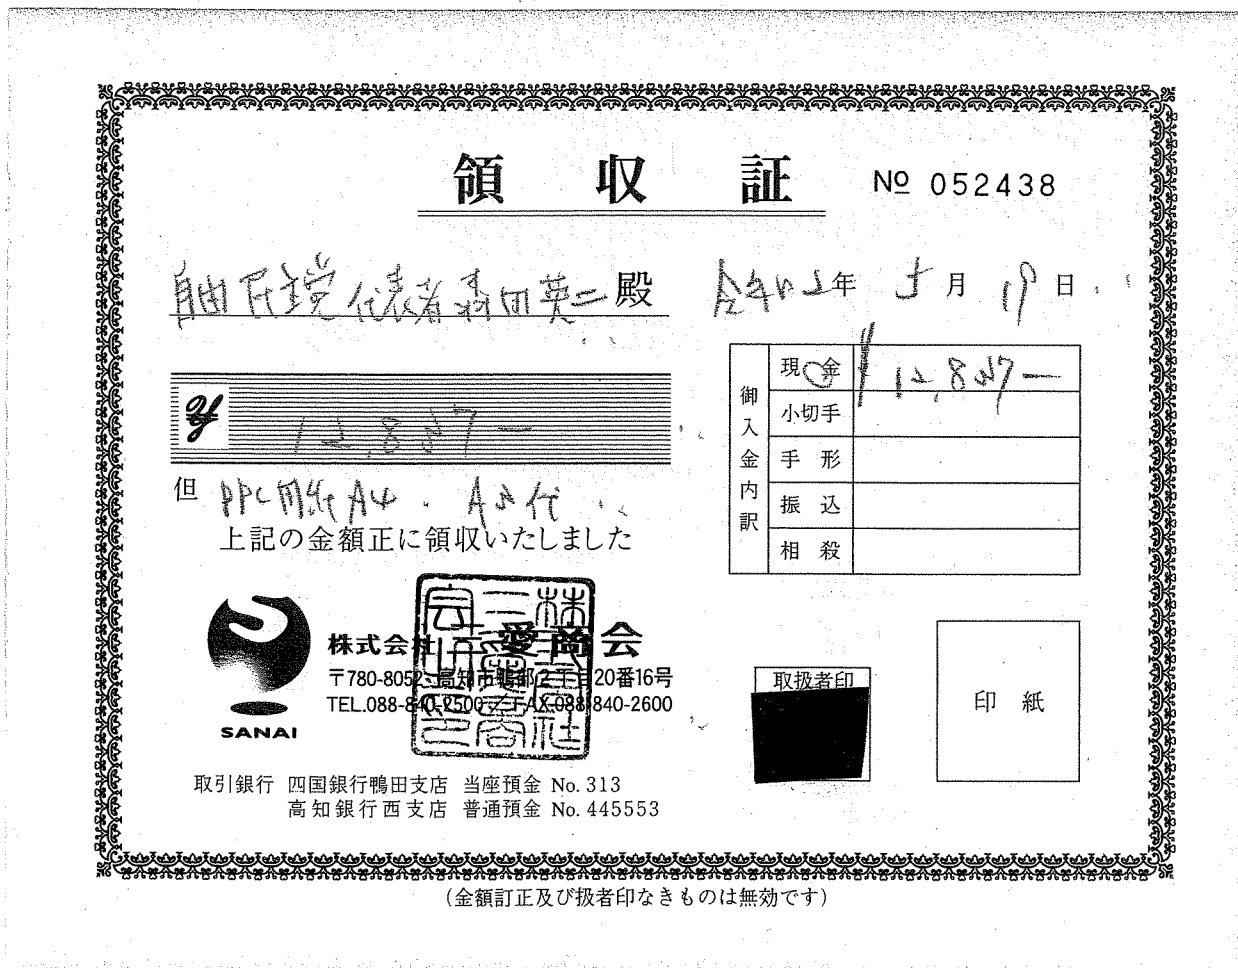 領収証
No 052438
自由民主党 代表者 森田英二 殿
令和2年 5月 19日
¥ 12,837ー
但 PPC用紙 A4 . A3代
上記の金額正に領収いたしました
御入金内訳
現金 ¥12,837ー
小切手
手形
振込
相殺
SANAI
株式会社 三愛商会
〒780-8052 高知市鴨部2丁目20番16号
TEL.088-840-2500/FAX.088-840-2600
取扱者印
印紙
取引銀行 四国銀行鴨田支店 当座預金 No. 313
高知銀行西支店 普通預金 No. 445553
(金額訂正及び扱者印なきものは無効です)